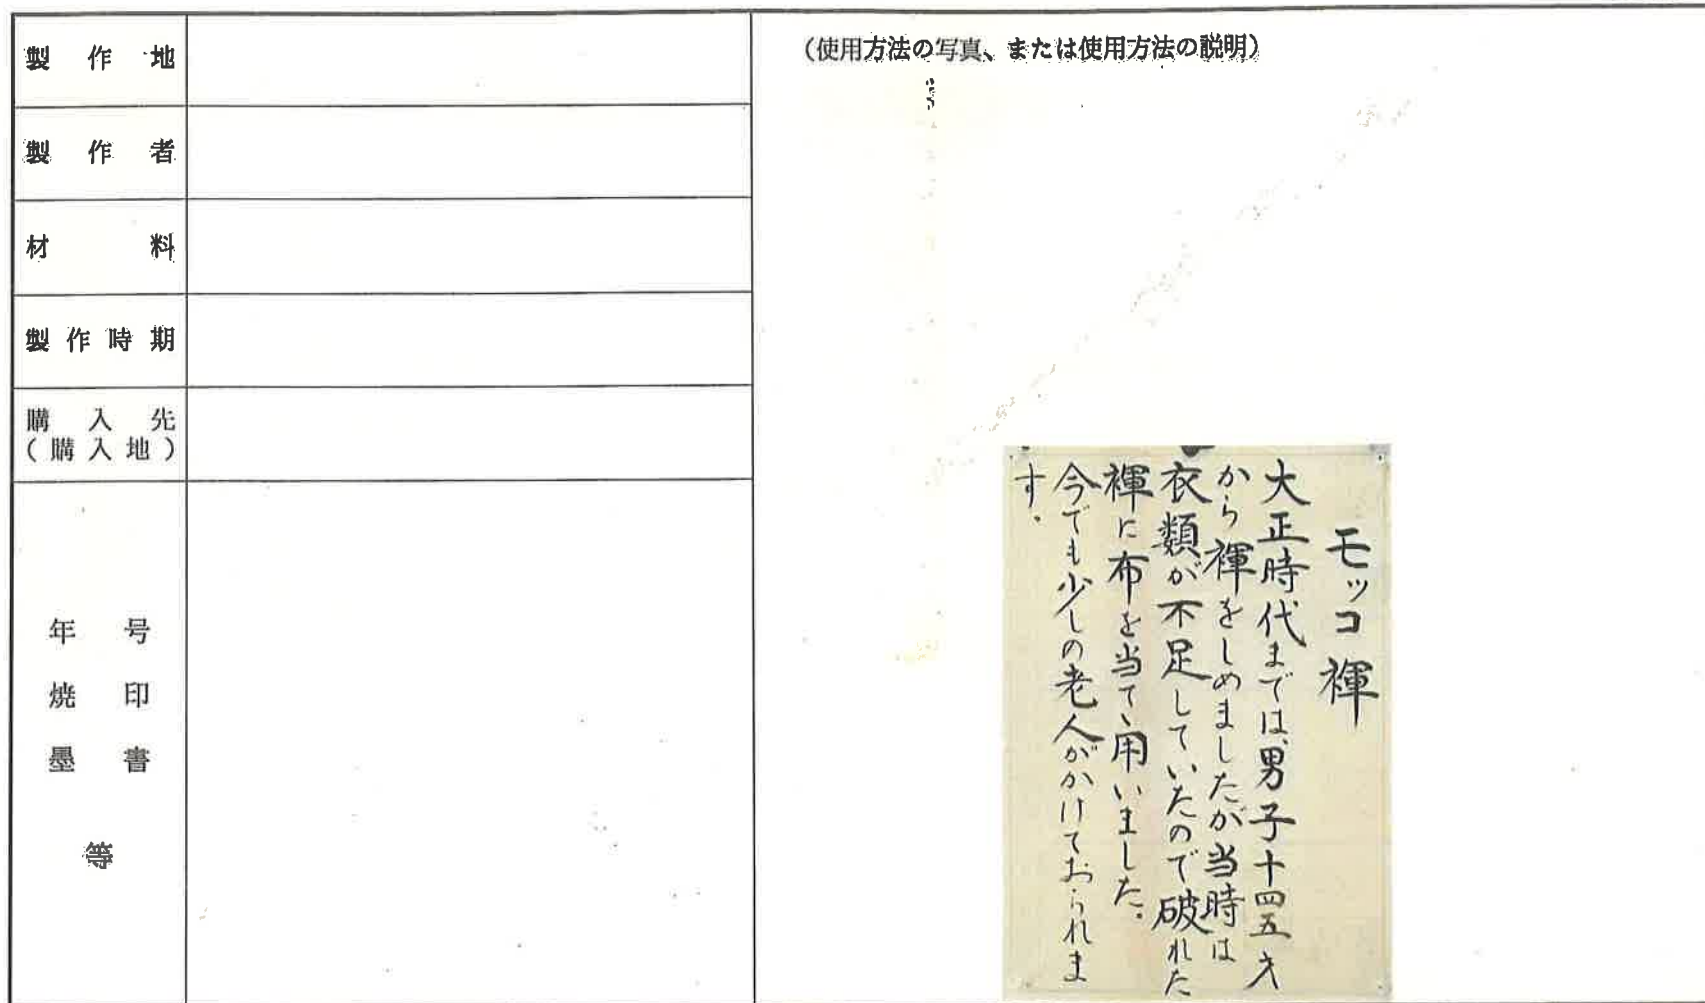 製作地
製作者
材料
製作時期
購入先
(購入地)
年号
焼印
墨書
等
(使用方法の写真、または使用方法の説明)
モッコ褌
大正時代までは、男子十四五才
から褌をしめましたが当時は
衣類が不足していたので破れた
褌に布を当て、用いました。
今でも少しの老人がかけておられま
す。